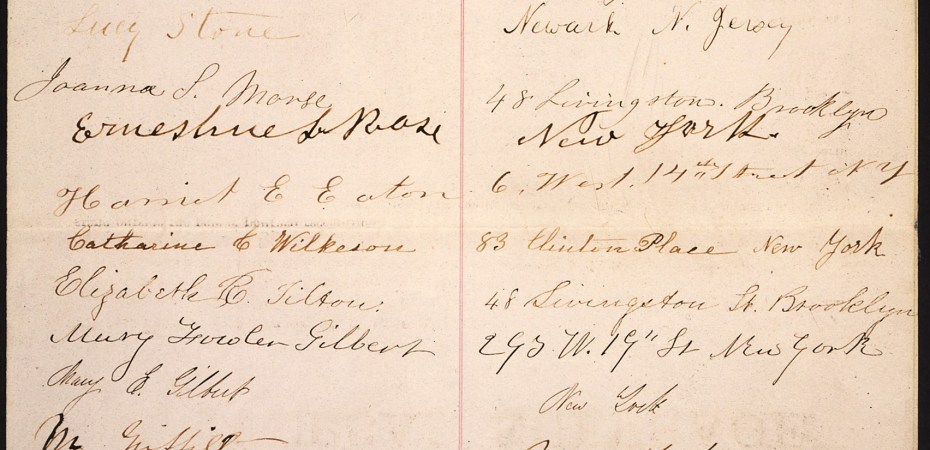 Lucy Stone Newark N. Jersey
Joanna S. Morse 48 Livingston. Brooklyn
Ernestine L Rose New York.
Harriet E Eaton 6. West. 14th Street N Y
Catharine C Wilkeson 83 Clinton Place New York
Elizabeth R. Tilton. 48 Livingston St. Brooklyn
Mary Fowler Gilbert 293 W. 19" St New York
Mary E. Gilbert New York
M. Griffith